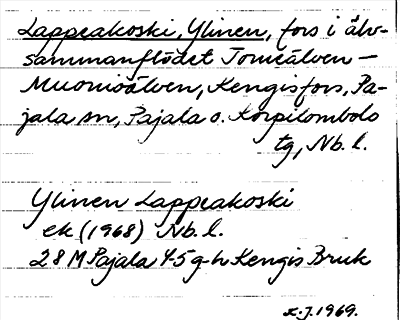 Lappeakoski, Ylinen, fors i älv-
sammanflödet Torneälven –
Muonioälven, Kengisfors, Pa-
jala sn, Pajala o. Korpilombolo
tg, Nb. l.
Ylinen Lappeakoski
ek (1968) Nb. l.
28 M Pajala 4-5 g-h Kengis Bruk
1969.